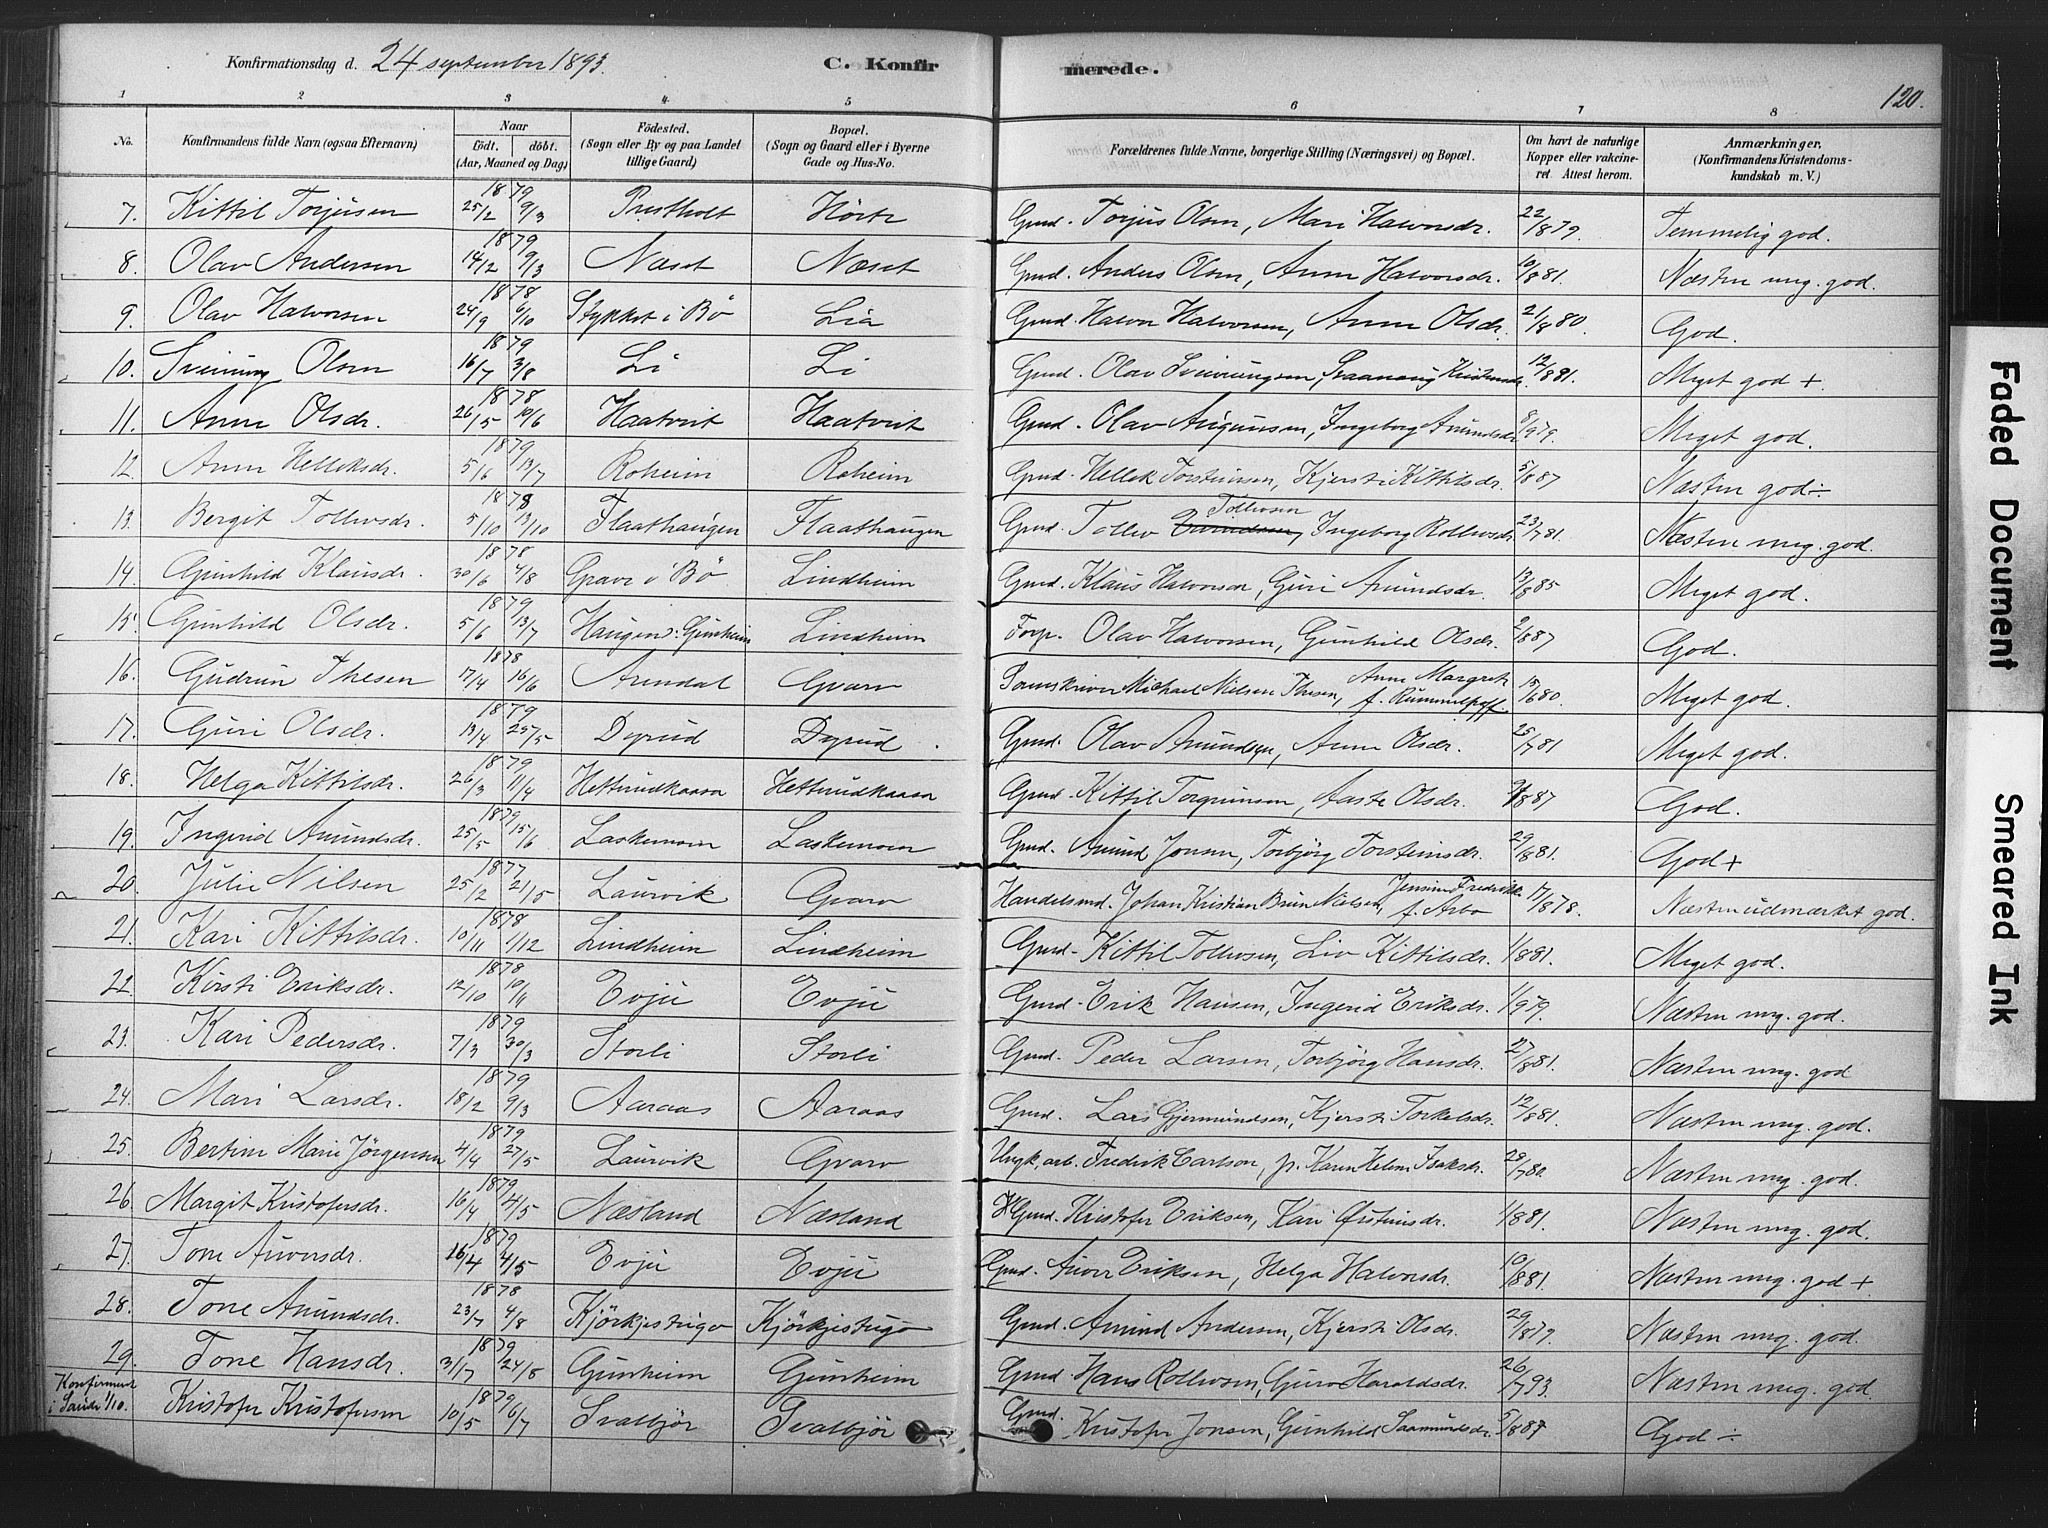 Konfirmationsdag d. 24 september 1893. C. Konfirmerede. 120.
1 2 3 4 5 6 7 8
No. Konfirmandens fulde Navn (ogsaa Efternavn) Naar Födt. döbt. (Aar, Maaned og Dag) Födested. (Sogn eller By og paa Landet tillige Gaard) Bopæl. (Sogn og Gaard eller i Byerne Gade og Hus-No. Forældrenes fulde Navne, borgerlige Stilling (Næringsvei) og Bopæl. Om havt de naturlige Kopper eller vakcineret. Attest herom. Anmærkninger. (Konfirmandens Kristendomskundskab m. V.)
7. Kittil Torjusen 1879 25/2 9/3 Prestholt Hörte Grmd. Torjus Olsen, Mari Halvorsdr. 22/8 79. Temmelig god.
8. Olav Andersen 1879 14/2 9/3 Næset Næset Grmd. Anders Olsen, Anne Halvorsdr. 10/8 81. Næsten meg. god.
9. Olav Halvorsen 1878 24/9 6/10 Stykket i Bö Lia Grmd. Halvor Halvorsen, Anne Olsdr. 21/8 80. God.
10. Sveinung Olsen 1879 16/7 3/8 Li Li Grmd. Olav Sveinungsen, Svaanaug Kristensdr. 12/8 81. Meget god +
11. Anne Olsdr. 1878 26/5 19/6 Haatveit Haatveit Grmd. Olav Augunsen, Ingeborg Amundsdr. 8/9 79. Meget god.
12. Anne Helleksdr. 1879 5/6 13/7 Roheim Roheim Grmd. Hellek Torsteinsen, Kjersti Kittilsdr. 5/8 87 Næsten god ÷
13. Bergit Tollevsdr. 1878 5/10 13/10 Flaathaugen Flaathaugen Grmd. Tollev Tollevsen, Ingeborg Rollevsdr. 23/7 81. Næsten meg. god.
14. Gunhild Klausdr. 1878 30/6 4/8 Grave i Bö Lindheim Grmd. Klaus Halvorsen, Guri Amundsdr. 13/8 85 Meget god.
15. Gunhild Olsdr. 1879 5/6 13/7 Haugen u. Gunheim Lindheim Forp. Olav Halvorsen, Gunhild Olsdr. 2/8 87 God.
16. Gudrun Thesen 1878 17/4 16/6 Arendal Gvarv Sorenskriver Michael Nielsen Thesen, Anne Margreth f. Rummelhoff. 15/6 80. Meget god.
17. Guri Olsdr. 1879 13/4 25/5 Dyrud Dyrud. Grmd. Olav Amundsen, Anne Olsdr. 25/7 81 Meget god.
18. Helga Kittilsdr. 1879 26/3 11/4 Hetterudkaasa Hetterudkaasa Grmd. Kittil Torgrimsen, Aaste Olsdr. 9/8 87 God.
19. Ingerid Amundsdr. 1879 25/5 15/6 Laskemoen Laskemoen Grmd. Amund Jonsen, Torbjörg Torsteinsdr. 29/8 81. God +
20. Julie Nilsen 1877 25/2 21/5 Laurvik Gvarv Handelsmd. Johan Kristian Brun Nielsen, Jensine Fredrikke f. Arbo 17/8 78. Næsten udmærket god.
21. Kari Kittilsdr. 1878 10/11 1/12 Lindheim Lindheim Grmd. Kittil Tollevsen, Liv Kittilsdr. 1/8 81. Meget god.
22. Kirsti Eriksdr. 1878 12/10 10/11 Evju Evju Grmd. Erik Hansen, Ingerid Eriksdr. 1/9 79. Næsten meg. god.
23. Kari Pedersdr. 1879 7/3 30/3 Storli Storli Grmd. Peder Larsen, Torbjörg Hansdr. 27/8 81. Næsten meg. god
24. Mari Larsdr. 1879 18/2 9/3 Aaraas Aaraas Grmd. Lars Gjermundsen, Kjersti Torkelsdr. 12/8 81. Næsten meg. god.
25. Bertine Marie Jörgensen 1879 4/4 27/5 Laurvik Gvarv Ungk, arb. Fredrik Carlson, p. Karen Helene Isaksdr. 29/7 80. Næsten meg. god.
26. Margit Kristofersdr. 1879 16/4 4/5 Næsland Næsland Grmd. Kristofer Eriksen, Kari Østensdr. 1/8 81. Næsten meg. god
27. Tone Auversdr. 1879 16/4 4/5 Evju Evju Grmd. Auver Eriksen, Helga Halvorsdr. 10/8 81. Næsten meg. god +
28. Tone Amundsdr. 1878 23/7 4/8 Kjörkjestugo Kjörkjestugo Grmd. Amund Andersen, Kjersti Olsdr. 29/8 79. Næsten meg. god.
29. Tone Hansdr. 1879 31/7 24/8 Gunheim Gunheim Grmd. Hans Rollevsen, Guro Haraldsdr. 26/7 93. Næsten meg. god
Konfirmeret i Saude 1/10. Kristofer Kristofersen 1879 10/5 6/7 Svalbjör Svalbjör Grmd. Kristofer Jonsen, Gunhild Saamundsdr. 5/8 87 God ÷
Faded Document
Smeared Ink